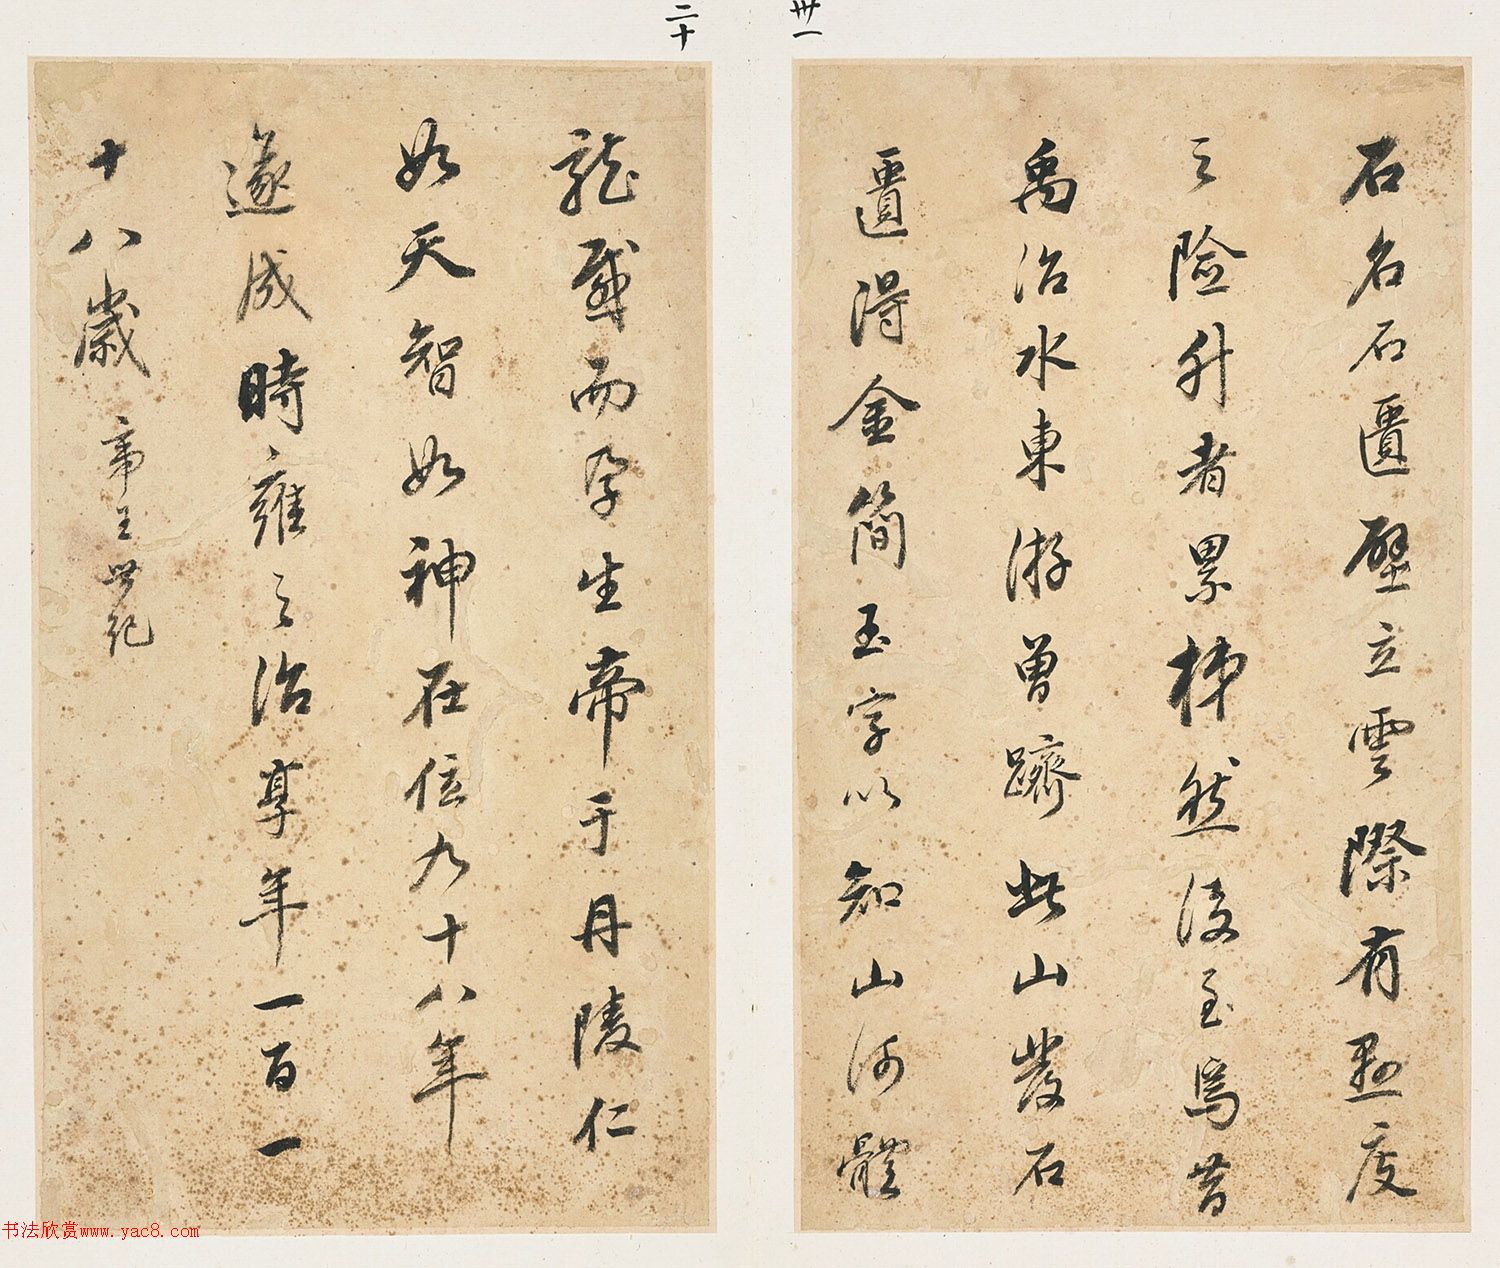 卅一
石名石匱壁立雲際有懸度
之險升者累梯然後至焉昔
禹治水東游曾躋此山發石
匱得金簡玉字以知山河體
二十
龍感而孕生帝于丹陵仁
如天智如神在位九十八年
遂成時雍之治享年一百一
十八歲 帝王世紀
书法欣赏www.yac8.com